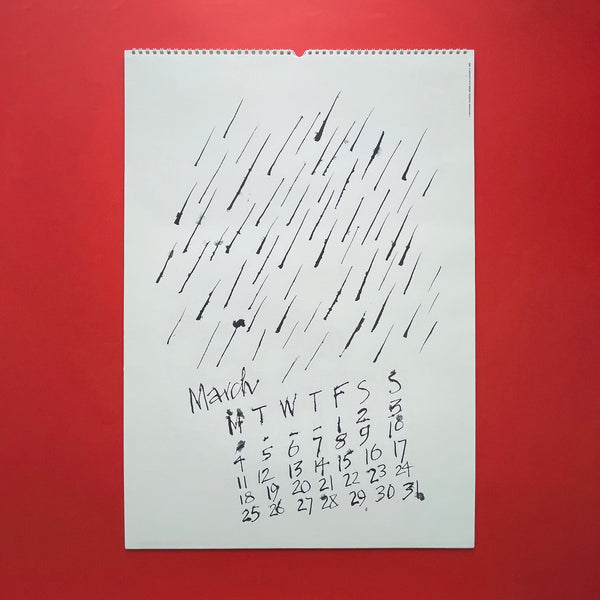 March
M T W T F S S
- - - - 1 2 3
4 5 6 7 8 9 10
11 12 13 14 15 16 17
18 19 20 21 22 23 24
25 26 27 28 29 30 31